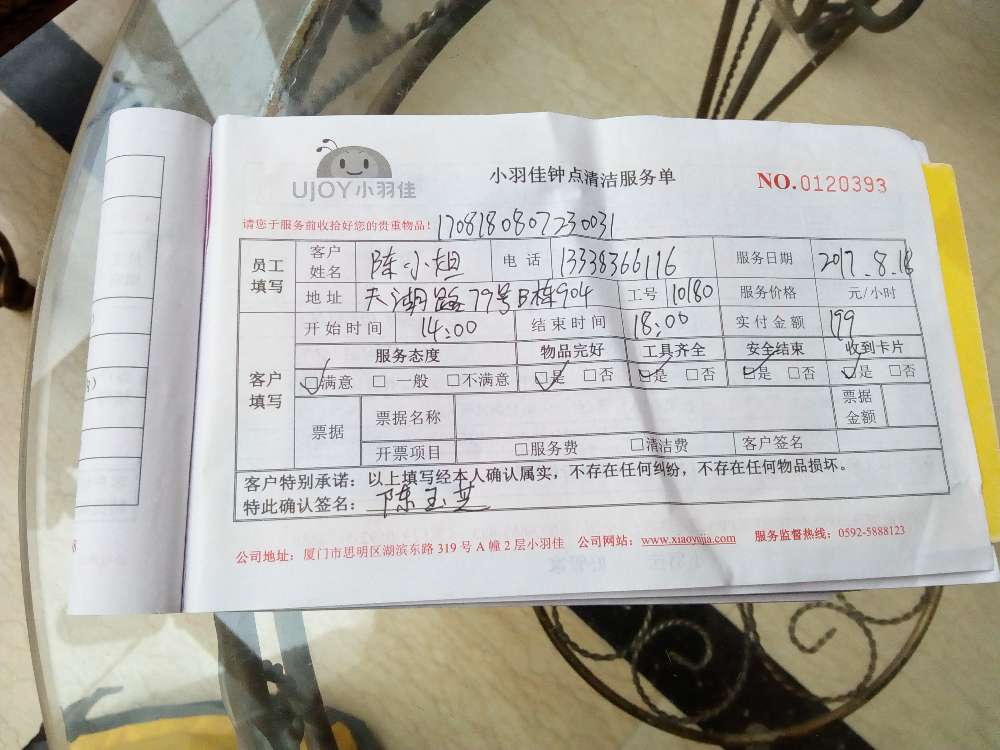 UJOY小羽佳
小羽佳钟点清洁服务单
NO.0120393
请您于服务前收拾好您的贵重物品！ 1708180807230031
员工填写 客户姓名 陈小姐 电话 13338366116 服务日期 2017.8.18
地址 天湖路79号B栋904 工号 10180 服务价格 元/小时
客户填写 开始时间 14:00 结束时间 18:00 实付金额 199
服务态度 物品完好 工具齐全 安全结束 收到卡片
☑满意 □一般 □不满意 ☑是 □否 ☑是 □否 ☑是 □否 ☑是 □否
票据 票据名称 票据金额
开票项目 □服务费 □清洁费 客户签名
客户特别承诺：以上填写经本人确认属实，不存在任何纠纷，不存在任何物品损坏。
特此确认签名：陈玉芝
公司地址：厦门市思明区湖滨东路319号A幢2层小羽佳 公司网站：www.xiaoyujia.com 服务监督热线：0592-5888123